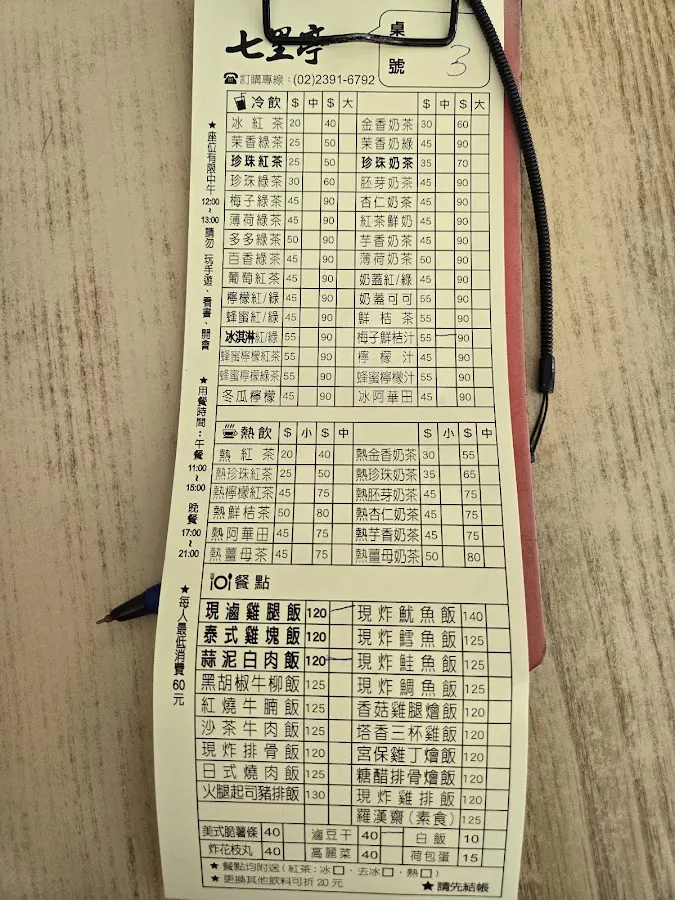 七里亭
桌號 3
☎訂購專線：(02)2391-6792
冷飲 $ 中 $ 大 $ 中 $ 大
冰紅茶 20 40 金香奶茶 30 60
茉香綠茶 25 50 茉香奶綠 45 90
珍珠紅茶 25 50 珍珠奶茶 35 70
珍珠綠茶 30 60 胚芽奶茶 45 90
梅子綠茶 45 90 杏仁奶茶 45 90
薄荷綠茶 45 90 紅茶鮮奶 45 90
多多綠茶 50 90 芋香奶茶 45 90
百香綠茶 45 90 薄荷奶茶 50 90
葡萄紅茶 45 90 奶蓋紅/綠 45 90
檸檬紅/綠 45 90 奶蓋可可 55 90
蜂蜜紅/綠 45 90 鮮桔茶 55 90
冰淇淋紅/綠 55 90 梅子鮮桔汁 55 90
蜂蜜檸檬紅茶 55 90 檸檬汁 45 90
蜂蜜檸檬綠茶 55 90 蜂蜜檸檬汁 55 90
冬瓜檸檬 45 90 冰阿華田 45 90
熱飲 $ 小 $ 中 $ 小 $ 中
熱紅茶 20 40 熱金香奶茶 30 55
熱珍珠紅茶 25 50 熱珍珠奶茶 35 65
熱檸檬紅茶 45 75 熱胚芽奶茶 45 75
熱鮮桔茶 50 80 熱杏仁奶茶 45 75
熱阿華田 45 75 熱芋香奶茶 45 75
熱薑母茶 45 75 熱薑母奶茶 50 80
餐點
現滷雞腿飯 120 現炸魷魚飯 140
泰式雞塊飯 120 現炸鱈魚飯 125
蒜泥白肉飯 120 現炸鮭魚飯 125
黑胡椒牛柳飯 125 現炸鯛魚飯 125
紅燒牛腩飯 125 香菇雞腿燴飯 120
沙茶牛肉飯 125 塔香三杯雞飯 120
現炸排骨飯 120 宮保雞丁燴飯 120
日式燒肉飯 125 糖醋排骨燴飯 120
火腿起司豬排飯 130 現炸雞排飯 120
羅漢齋(素食) 125
美式脆薯條 40 滷豆干 40 白飯 10
炸花枝丸 40 高麗菜 40 荷包蛋 15
★ 餐點均附送 (紅茶：冰□、去冰□、熱□)
★ 更換其他飲料可折 20 元 ★請先結帳
★座位有限中午12:00~13:00請勿 玩手遊、看書、開會
★用餐時間：午餐11:00~15:00 晚餐17:00~21:00
★每人最低消費60元